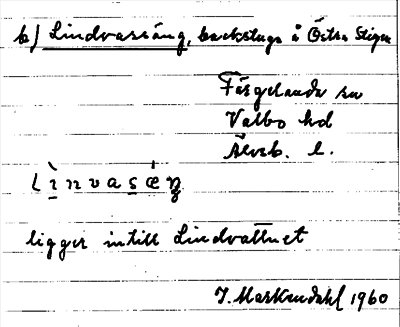 b) Lindvassäng, backstuga å Östra Stigen
Färgelanda sn
Valbo hd
Älvsb. l.
lìnvasæ̀ŋ
ligger intill Lindvattnet
J. Markendahl 1960